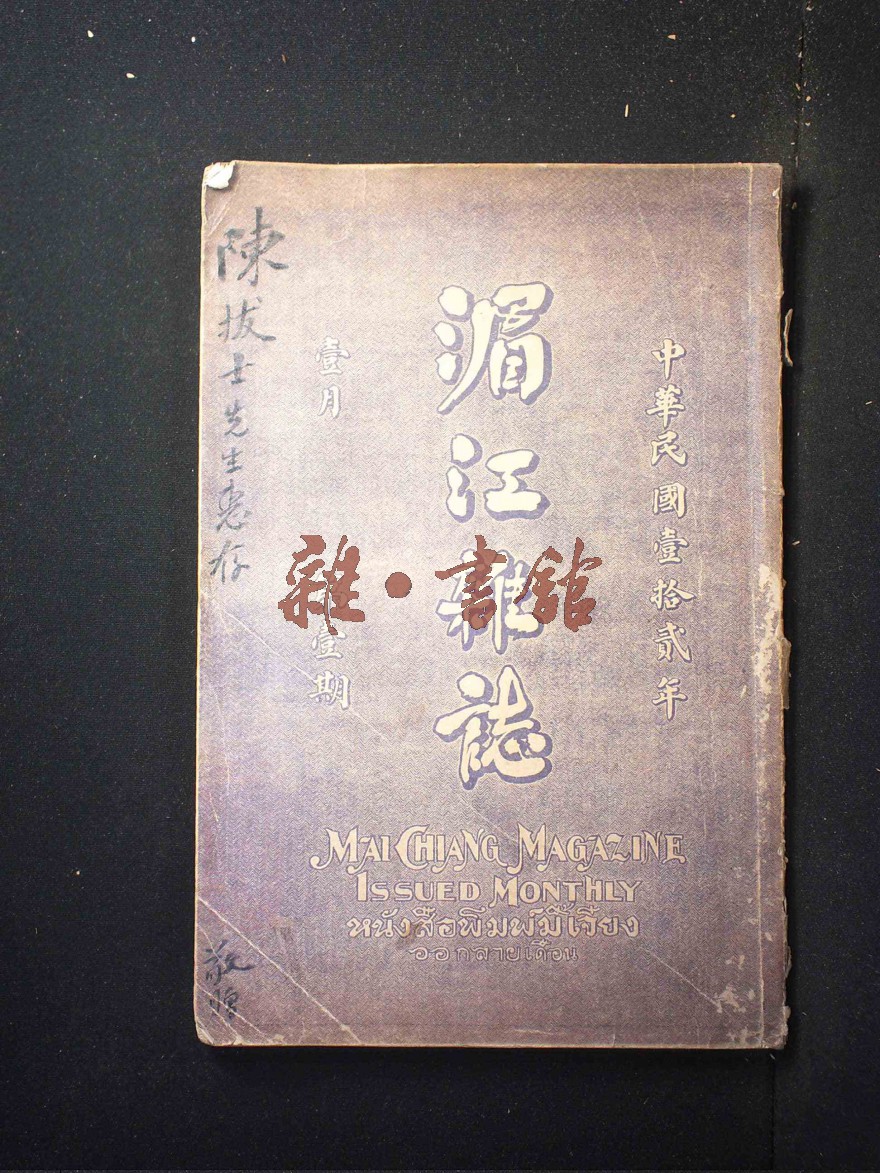 中華民國壹拾貳年
湄江雜誌
壹月
壹期
陳拔士先生惠存
敬贈
雜·書館
MAI CHIANG MAGAZINE
ISSUED MONTHLY
หนังสือพิมพ์มี้เรียง
ออกลายเดือน